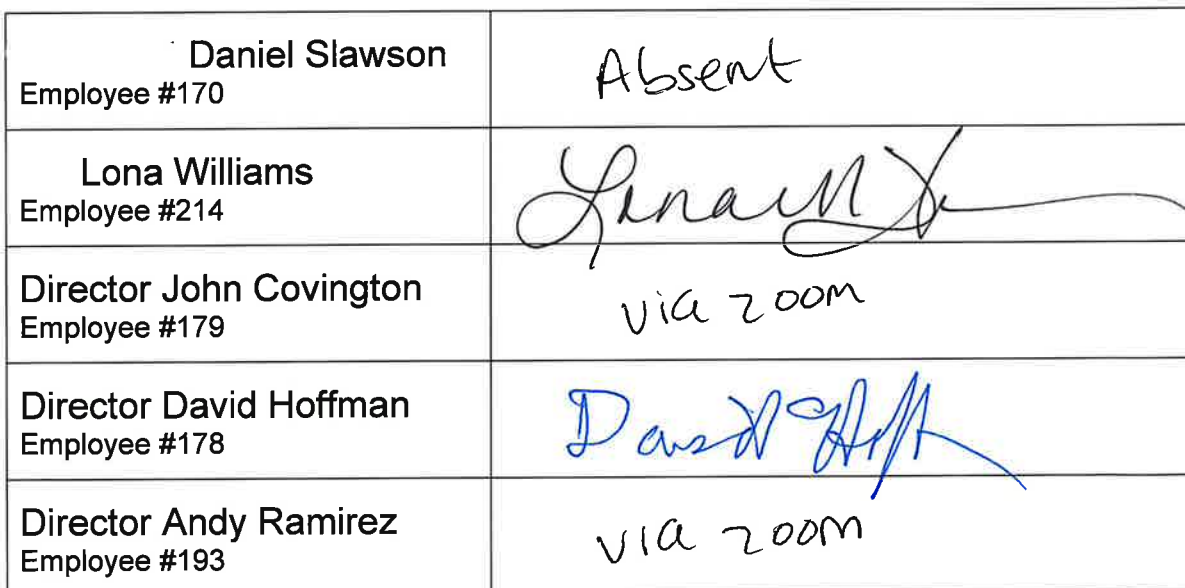 Daniel Slawson
Employee #170
Absent
Lona Williams
Employee #214
Director John Covington
Employee #179
via zoom
Director David Hoffman
Employee #178
David Hoff
Director Andy Ramirez
Employee #193
via zoom